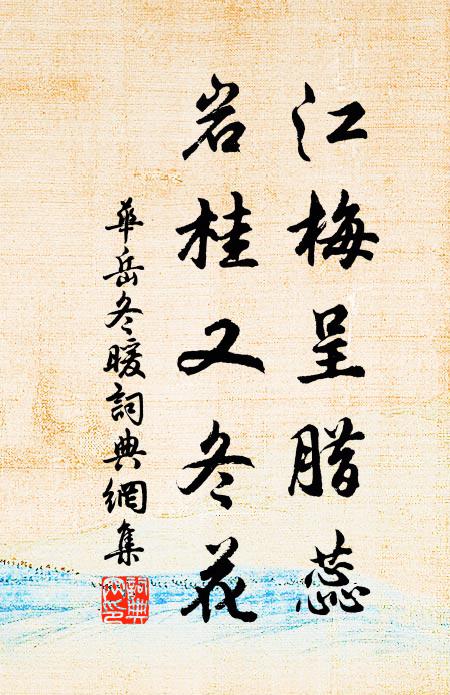 江梅呈腊蕊
岩桂又冬花
华岳冬暖詞典網集